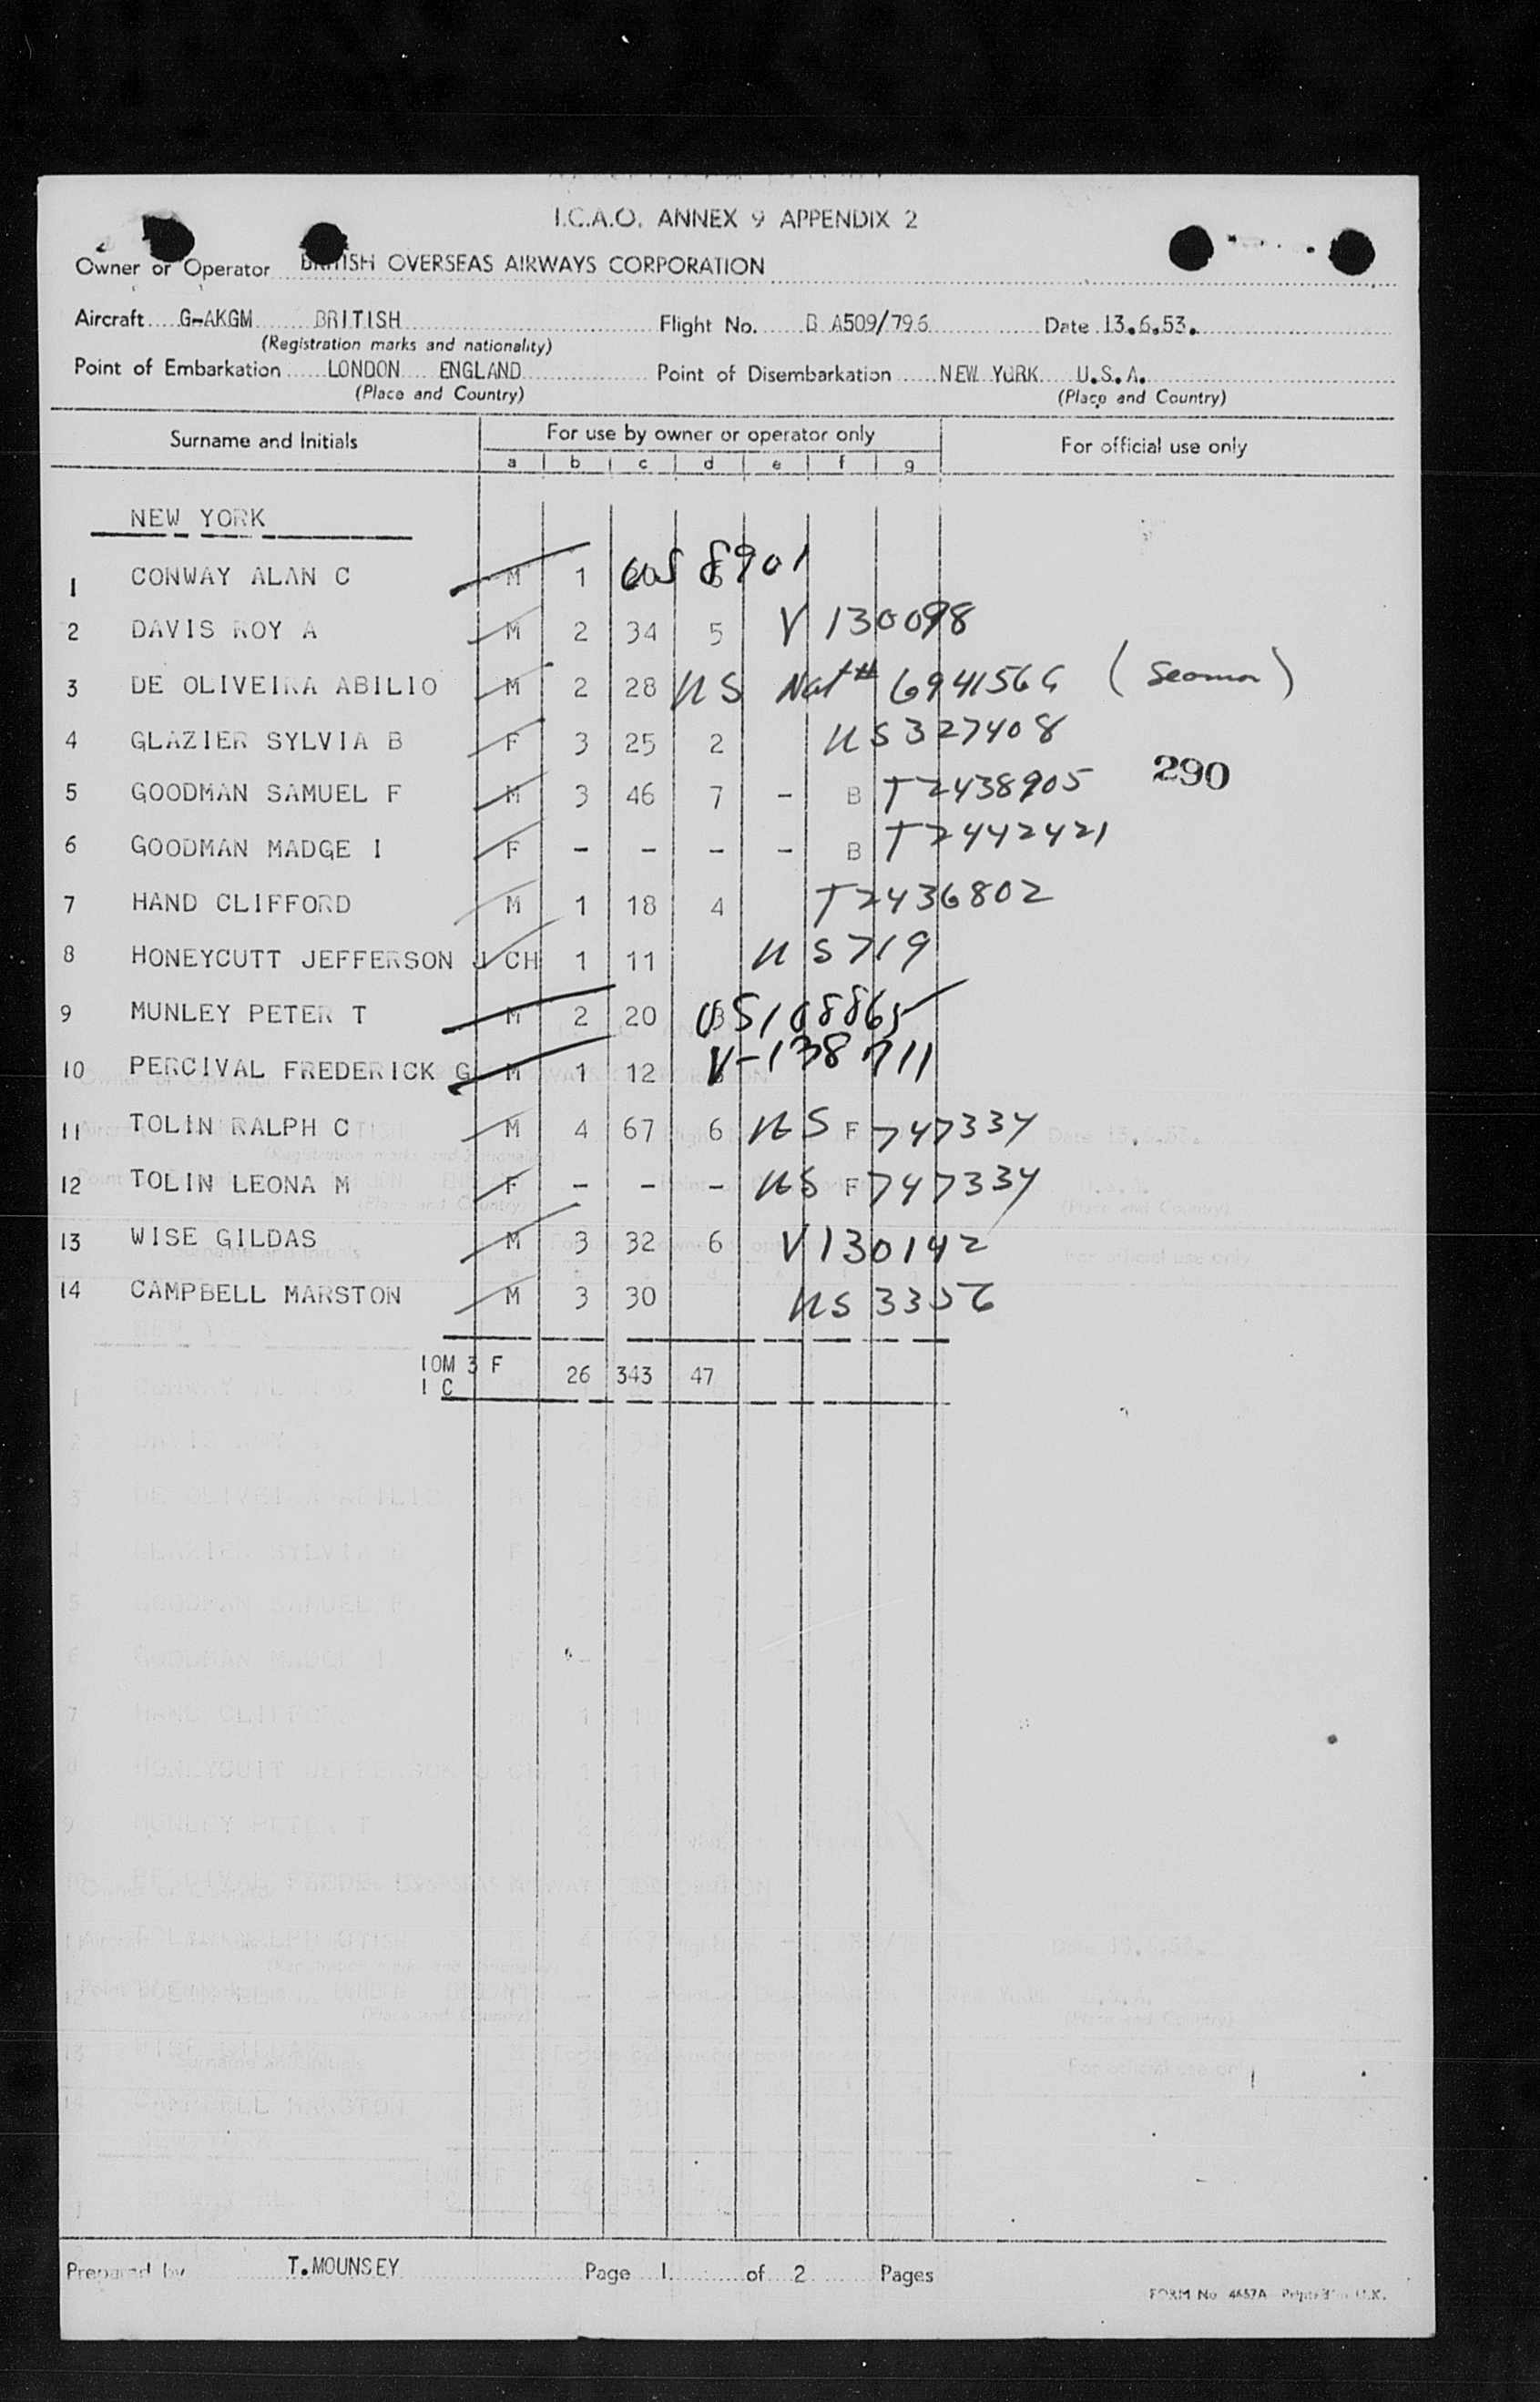 I.C.A.O. ANNEX 9 APPENDIX 2
Owner or Operator BRITISH OVERSEAS AIRWAYS CORPORATION
Aircraft G-AKGM BRITISH Flight No. B A509/796 Date 13.6.53.
(Registration marks and nationality)
Point of Embarkation LONDON ENGLAND Point of Disembarkation NEW YORK U.S.A.
(Place and Country) (Place and Country)
Surname and Initials For use by owner or operator only For official use only
a b c d e f g
NEW YORK
1 CONWAY ALAN C M 1 US 8901
2 DAVIS ROY A M 2 34 5 V 130098
3 DE OLIVEIRA ABILIO M 2 28 US Nat# (Seaman)
4 GLAZIER SYLVIA B F 3 25 2 US 327408
290
5 GOODMAN SAMUEL F M 3 46 7 - B T2438905
6 GOODMAN MADGE I F - - - - B T2442421
7 HAND CLIFFORD M 1 18 4 T2436802
8 HONEYCUTT JEFFERSON J CH 1 11 US 719
9 MUNLEY PETER T M 2 20 US 108865
10 PERCIVAL FREDERICK G M 1 12 V-138711
11 TOLIN RALPH C M 4 67 6 US F 747334
12 TOLIN LEONA M F - - - US F 747334
13 WISE GILDAS M 3 32 6 V130142
14 CAMPBELL MARSTON M 3 30 US 3356
10M 3 F 26 343 47
1 C
Prepared by T.MOUNSEY Page 1 of 2 Pages
FORM No 4657A Printed in U.K.